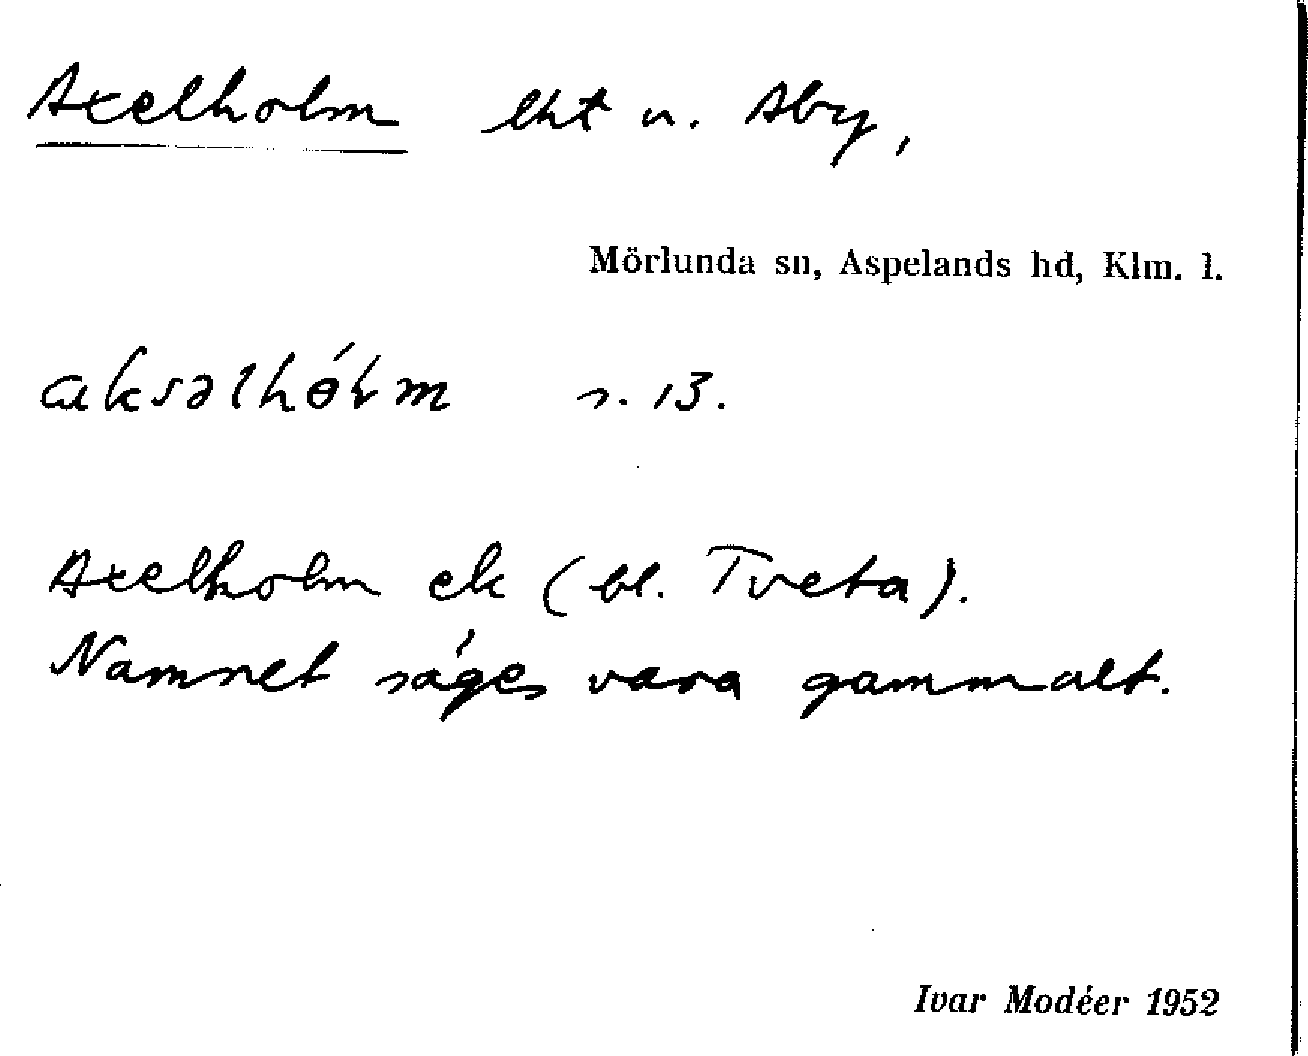 Axelholm lht u. Åby,
Mörlunda sn, Aspelands hd, Klm. l.
s. 13.
Axelholm ek (bl. Tveta).
Namnet säges vara gammalt.
Ivar Modéer 1952